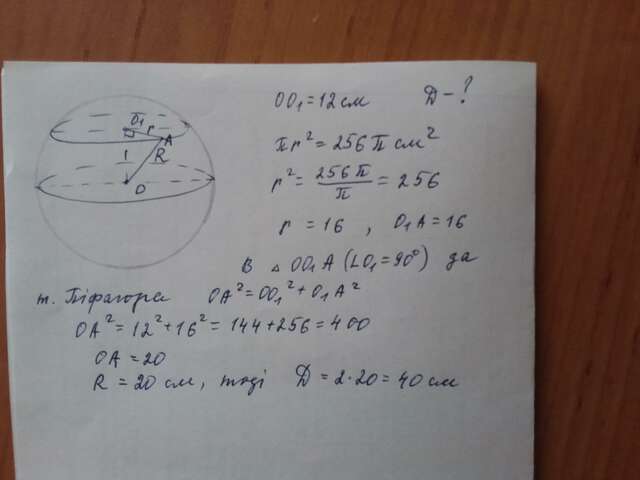 OO₁=12см D-?
πr²=256π см²
r²=256π/π=256
r=16, O₁A=16
В △OO₁A (∠O₁=90°) за
т. Піфагора OA²=OO₁²+O₁A²
OA²=12²+16²=144+256=400
OA=20
R=20 см, тоді D=2·20=40 см
O₁
r
A
R
O